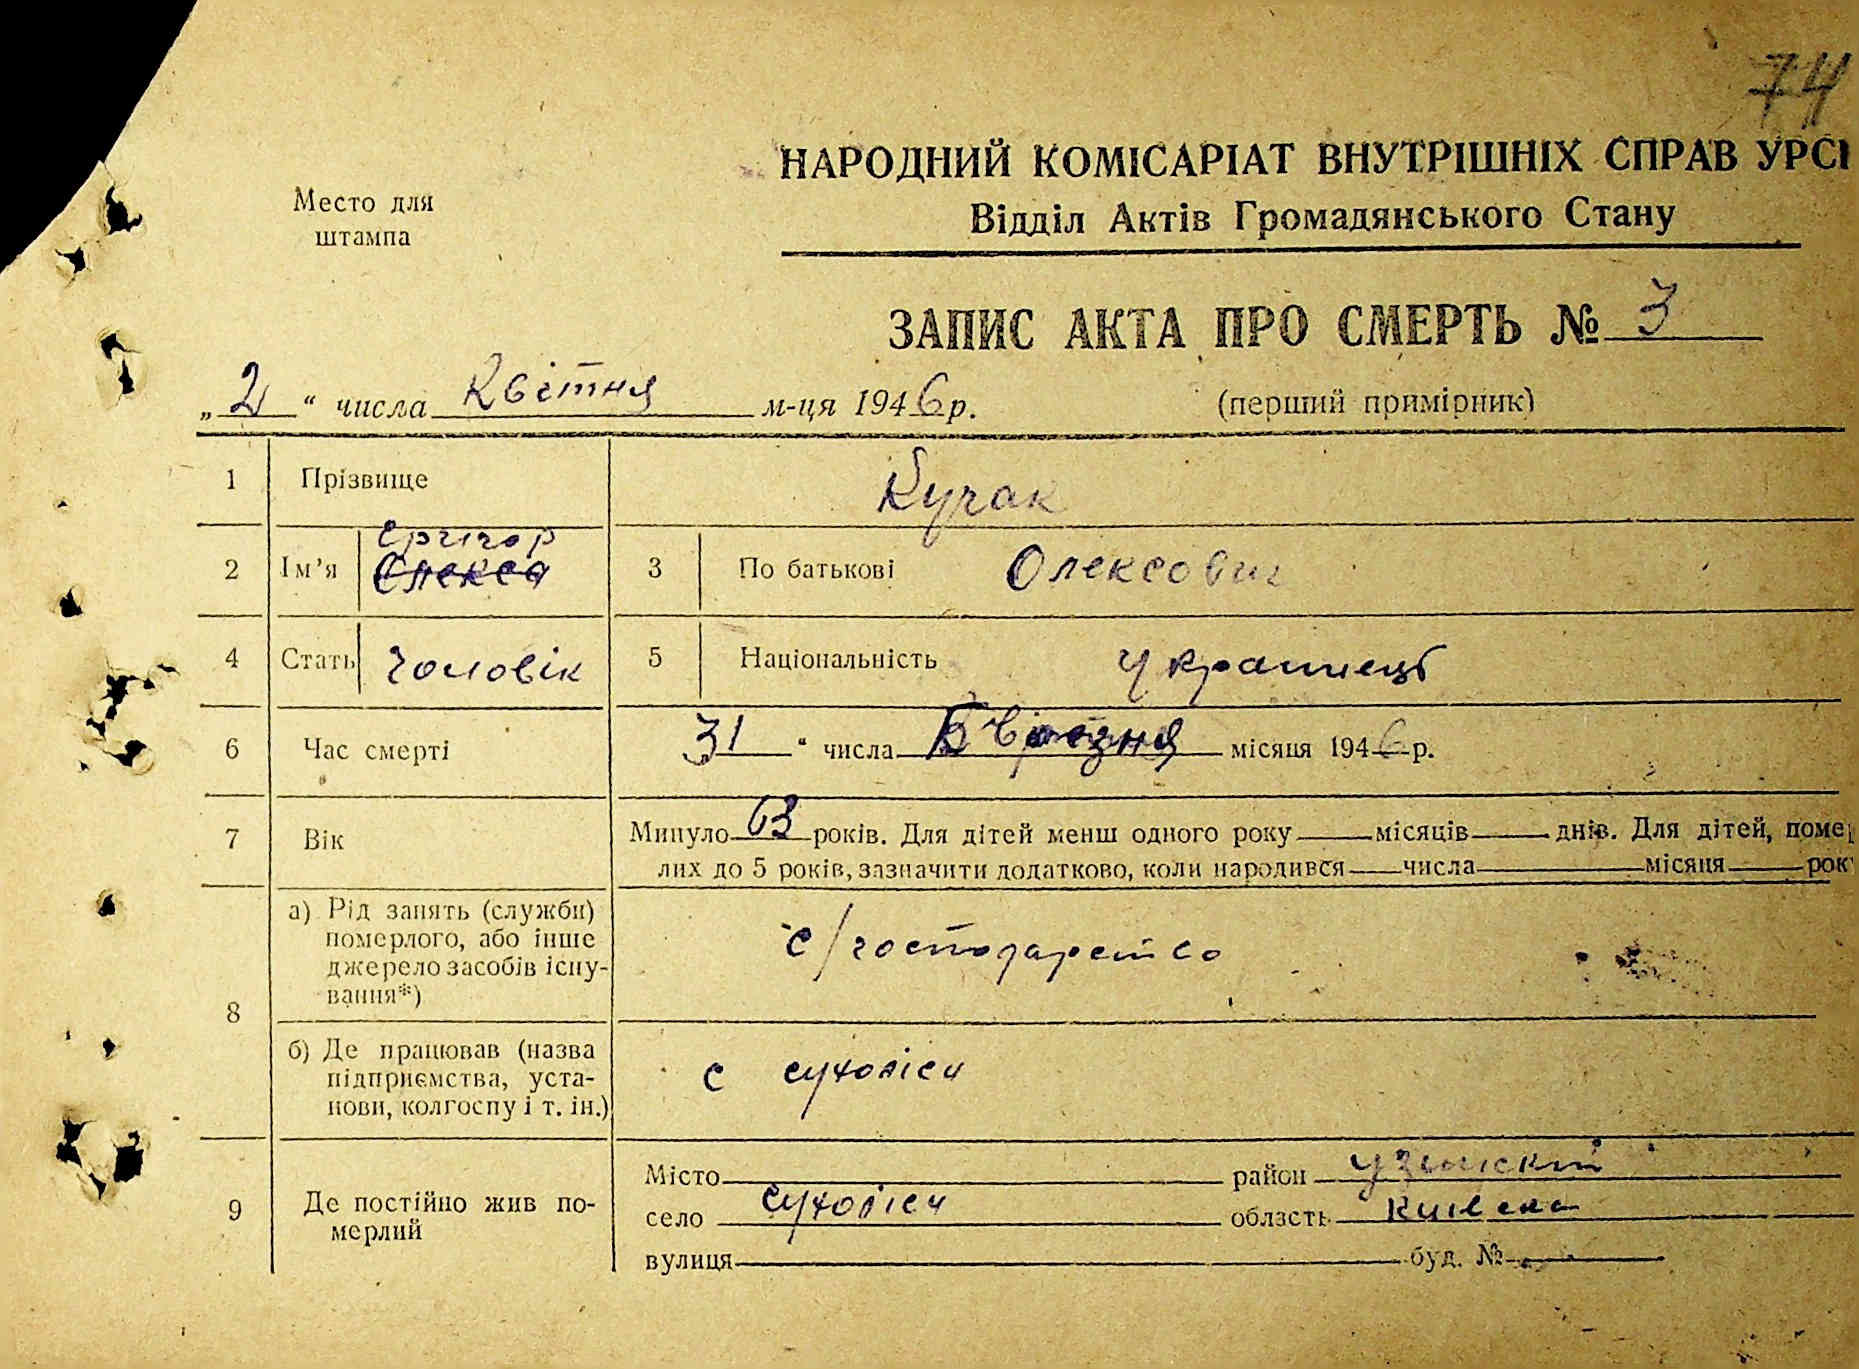 74
НАРОДНИЙ КОМІСАРІАТ ВНУТРІШНІХ СПРАВ УРСР
Відділ Актів Громадянського Стану
Место для
штампа
ЗАПИС АКТА ПРО СМЕРТЬ № 3
„2“ числа Квітня м-ця 1946 р. (перший примірник)
1 Прізвище Кучак
Григор
2 Ім’я Олекса 3 По батькові Олексович
4 Стать Чоловік 5 Національність Українець
6 Час смерті 31 “ числа Березня місяця 1946 р.
7 Вік Минуло 63 років. Для дітей менш одного року місяців днів. Для дітей, помер
лих до 5 років, зазначити додатково, коли народився числа місяця рок
8 а) Рід занять (служби) померлого, або інше джерело засобів існу-вання*) с/господарство
б) Де працював (назва підприємства, уста-нови, колгоспу і т. ін.) с Сухоліси
9 Де постійно жив по-мерлий
Місто район Узинский
село Сухоліси область Київска
вулиця буд. №